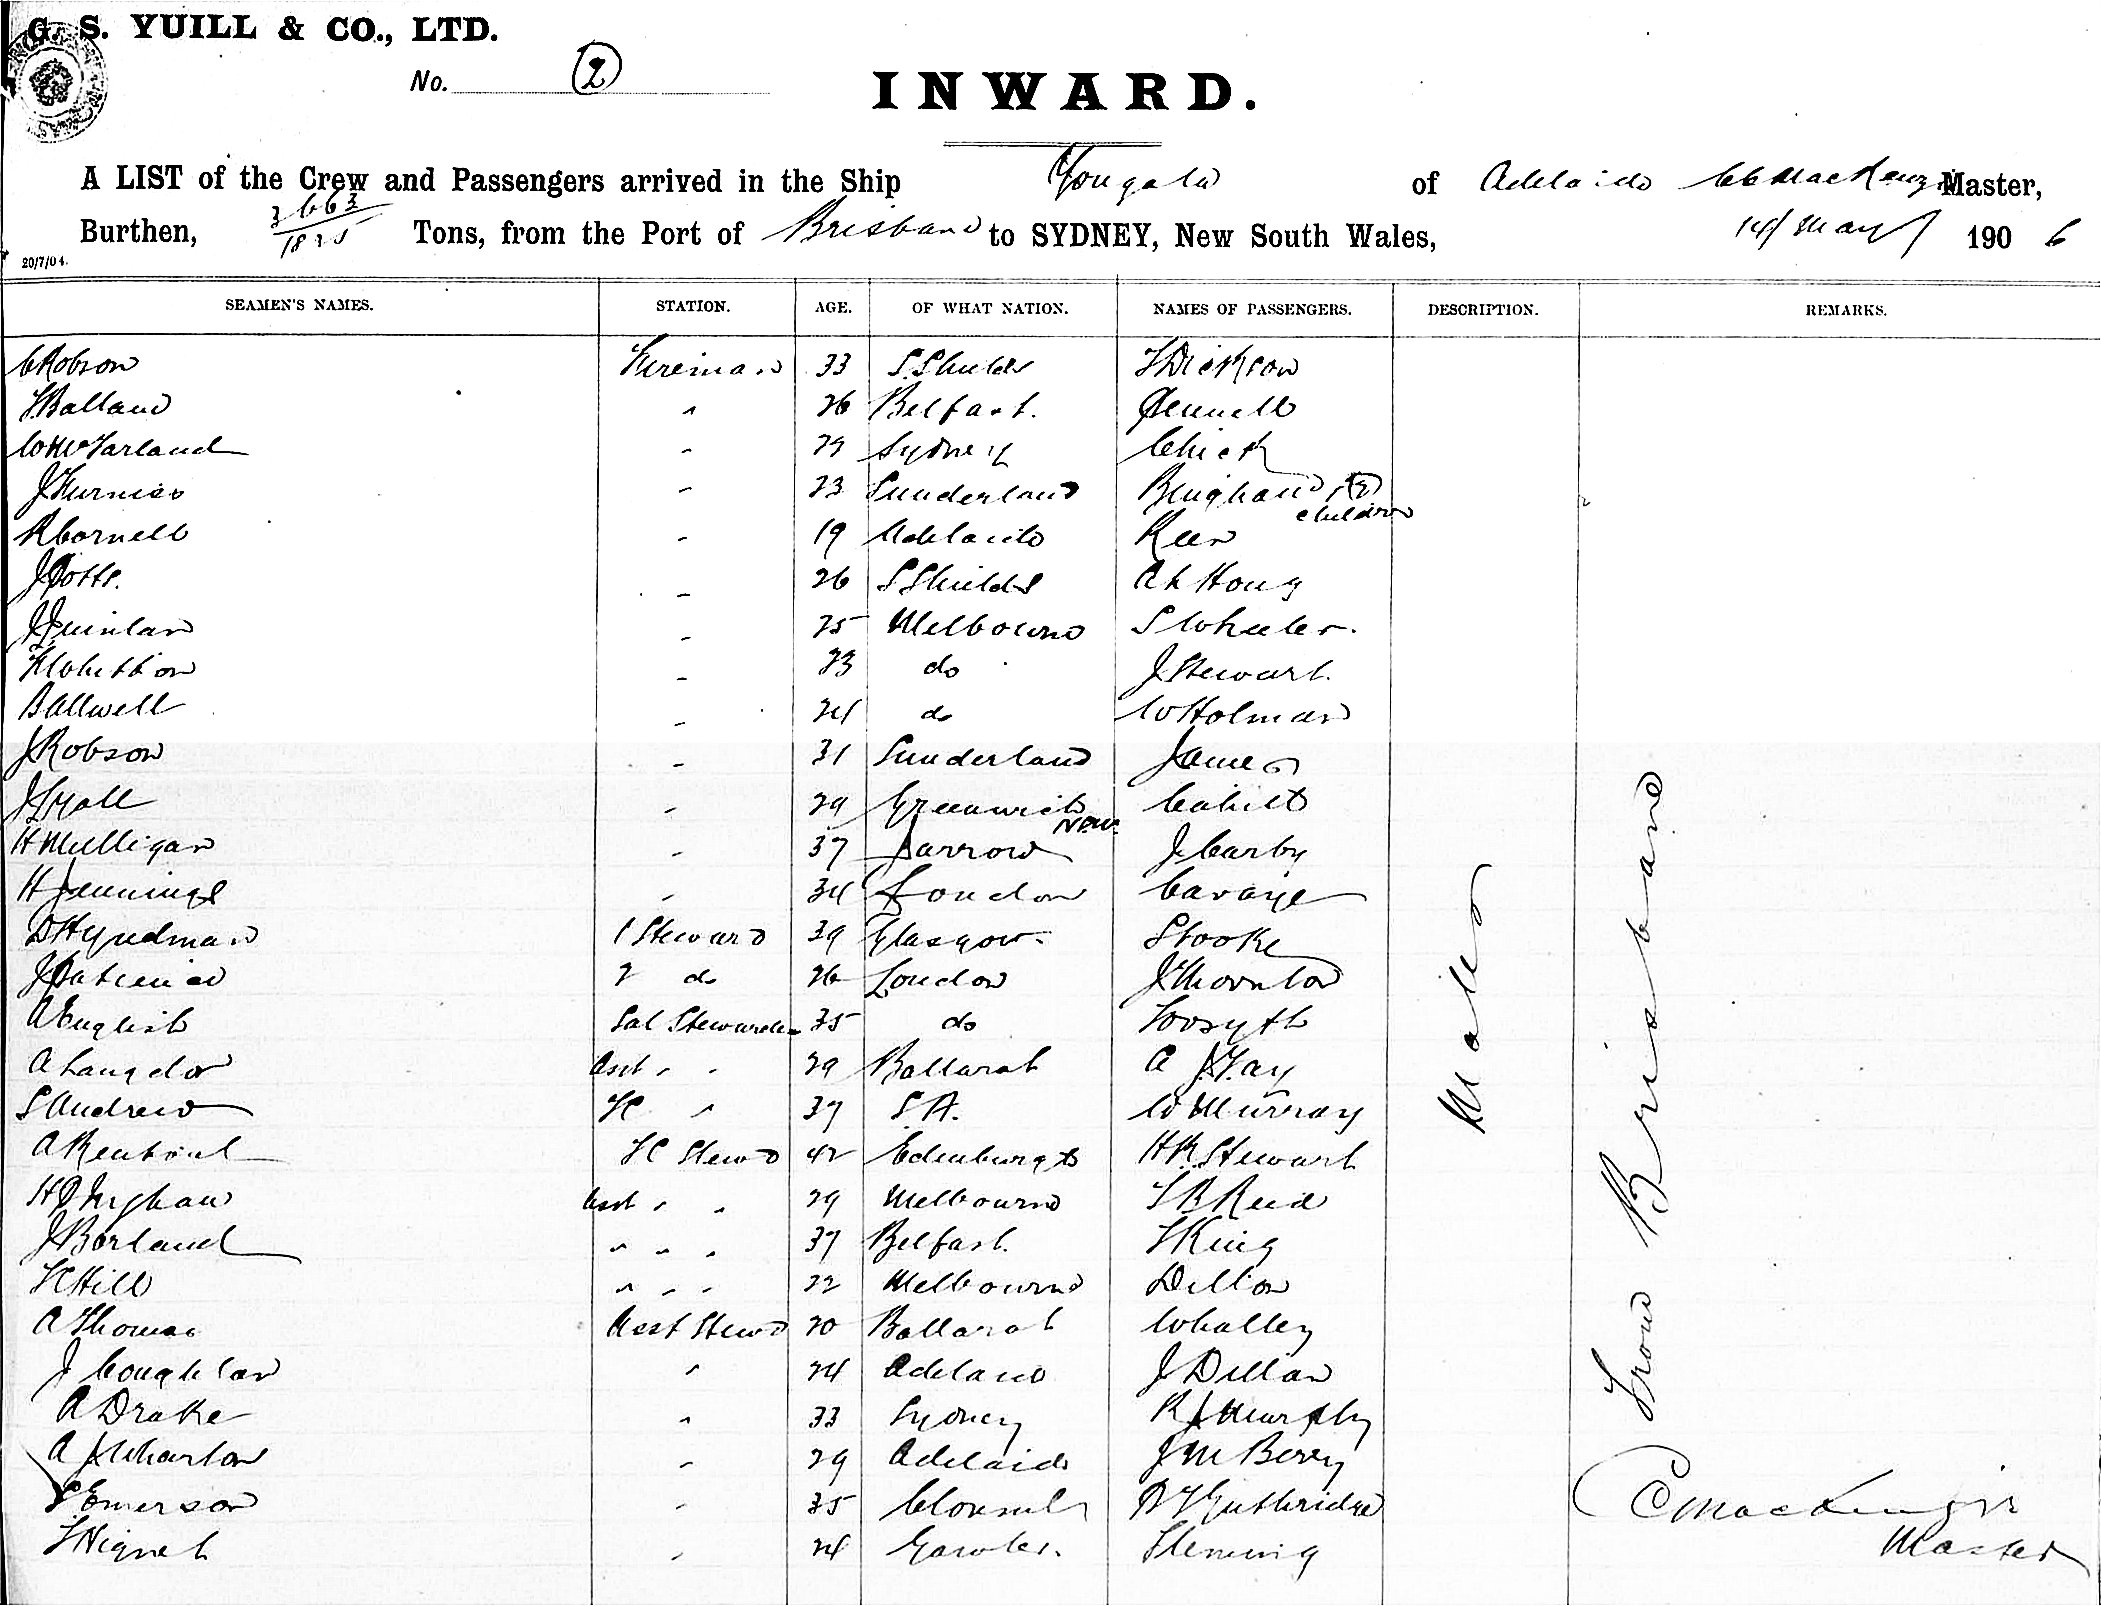 G. S. YUILL & CO., LTD.
No. 2
INWARD.
A LIST of the Crew and Passengers arrived in the Ship Yongala of Adelaide Mackenzie Master,
Burthen, 3663 1825 Tons, from the Port of Brisbane to SYDNEY, New South Wales, 14 May 1906
20/7/04.
SEAMEN'S NAMES. STATION. AGE. OF WHAT NATION. NAMES OF PASSENGERS. DESCRIPTION. REMARKS.
C Robson Fireman 33 S. Shields T Dickson
T Balland " 26 Belfast.
W McFarland " 29 Sydney Chick
J Furniss " 23 Sunderland Bingham & (2) children
R Cornell " 19 Adelaide Keen
J Potts. " 26 S Shields Ah Hong
J Quinlan " 25 Melbourne S Wheeler.
H Whitton " 23 do J Stewart.
B Allwell " 24 do W Holman
J Robson " 31 Sunderland James
J Lyall " 29 Greenwich Cahill
H Mulligan " 37 Jarrow J Carby
H Jennings " 34 London Cavaye
D Hyndman 1 Steward 39 Glasgow Stooke
J 2 do 26 London J Thornton
A English Sal Stewardess 35 do Forsyth
A Langdon Asst " " 29 Ballarat A J. Fay
S Andrew FC " 37 S A. W Murray
A Rentoul FC Stewd 42 Edenburgh H R. Stewart
H D Ingham Asst " " 29 Melbourne T B Reid
J Borland " " " 37 Belfast. T King
F C Hill " " " 22 Melbourne Dillon
A Thomas Asst Stewd 20 Ballarat Whalley
J Coughlan " 24 Adelaide J Dillan
A Drake " 33 Sydney R J Murphy
A J Wharton " 29 Adelaide J M Berry
S Emerson " 35 Clonmel R T Guthridge
T Hignet " 24 Gawler. Fleming
Males
From Brisbane
C Mackenzie
Master